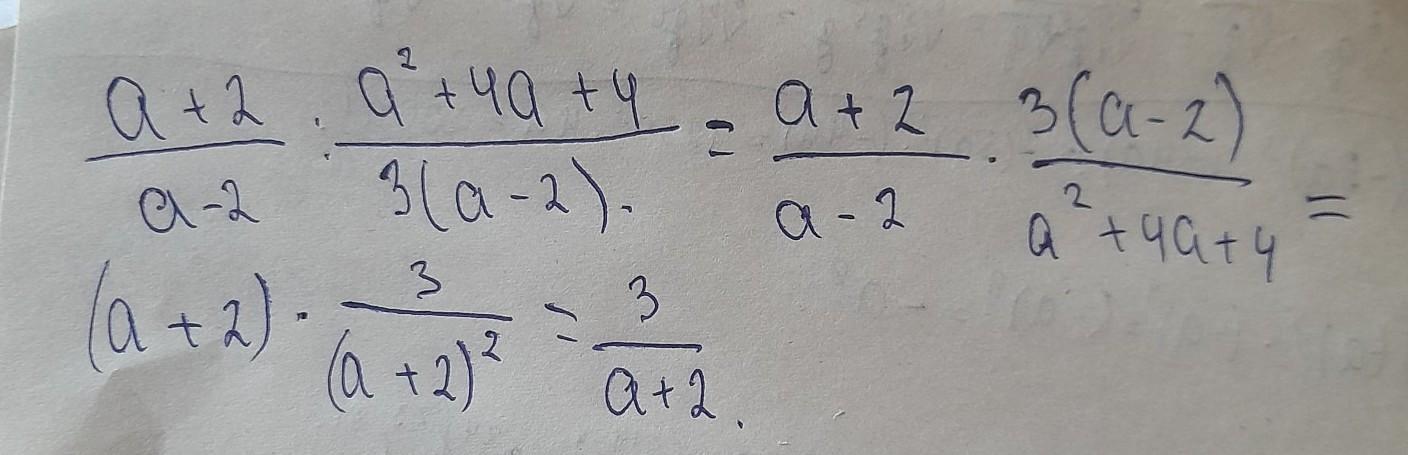 \frac{a+2}{a-2} : \frac{a^2+4a+4}{3(a-2)}. = \frac{a+2}{a-2} \cdot \frac{3(a-2)}{a^2+4a+4} =
(a+2) \cdot \frac{3}{(a+2)^2} = \frac{3}{a+2}.